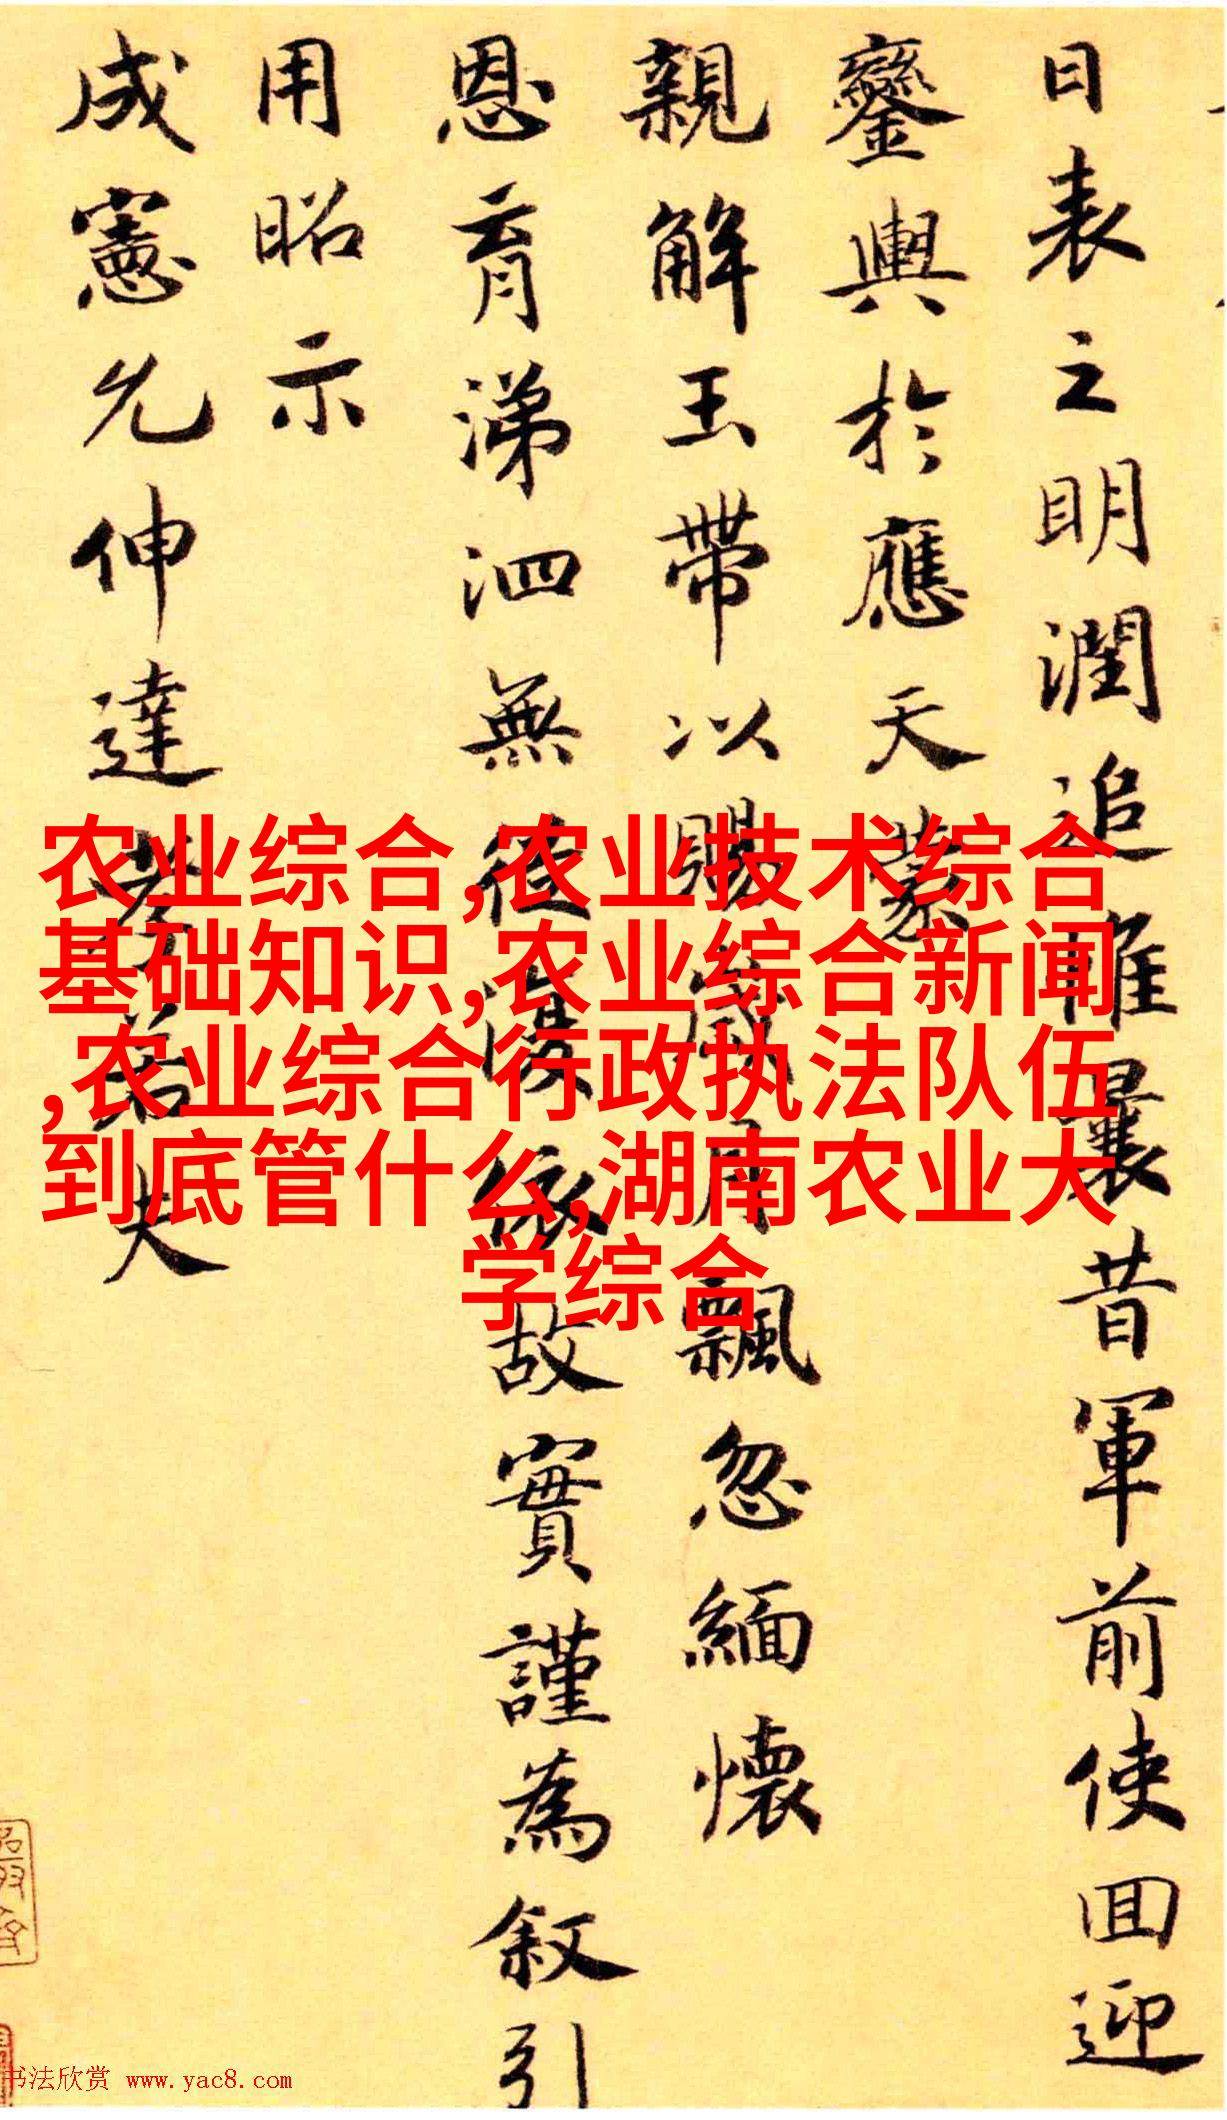 日表之明潤追惟曩昔軍前使回迎
鑾輿於應天蒙
親解玉帶以賜歲月飄忽緬懷
恩育涕泗無從復依故實謹為叙引
用昭示
成憲尤伸達孝若夫
农业综合,农业技术综合
基础知识,农业综合新闻
,农业综合行政执法队伍
到底管什么,湖南农业大
学综合
书法欣赏 www.yac8.com